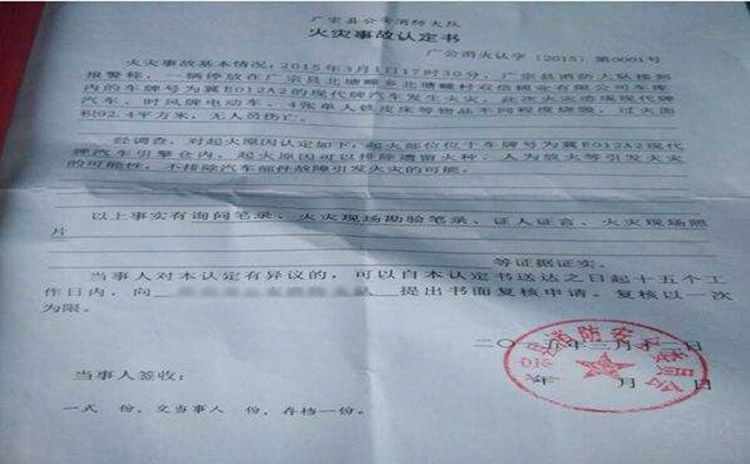 广宗县公安消防大队
火灾事故认定书
广公消火认字〔2015〕第0001号
火灾事故基本情况:2015年3月1日17时30分,广宗县消防大队接到
报警称,一辆停放在广宗县北塘疃乡北塘疃村双信棉业有限公司车库
内的车牌号为冀E012A2的现代牌汽车发生火灾,此次火灾造成现代牌
汽车、时风牌电动车、4张单人铁皮床等物品不同程度烧毁,过火面
积92.4平方米,无人员伤亡。
经调查,对起火原因认定如下,起火部位位于车牌号为冀E012A2现代
牌汽车引擎仓内,起火原因可以排除遗留火种、人为放火等引发火灾
的可能性,不排除汽车部件故障引发火灾的可能。
以上事实有询问笔录、火灾现场勘验笔录、证人证言、火灾现场照
片
等证据证实。
当事人对本认定有异议的,可以自本认定书送达之日起十五个工
作日内,向 提出书面复核申请。复核以一次
为限。
年 月 日
当事人签收:
一式 份,交当事人 份,存档一份。